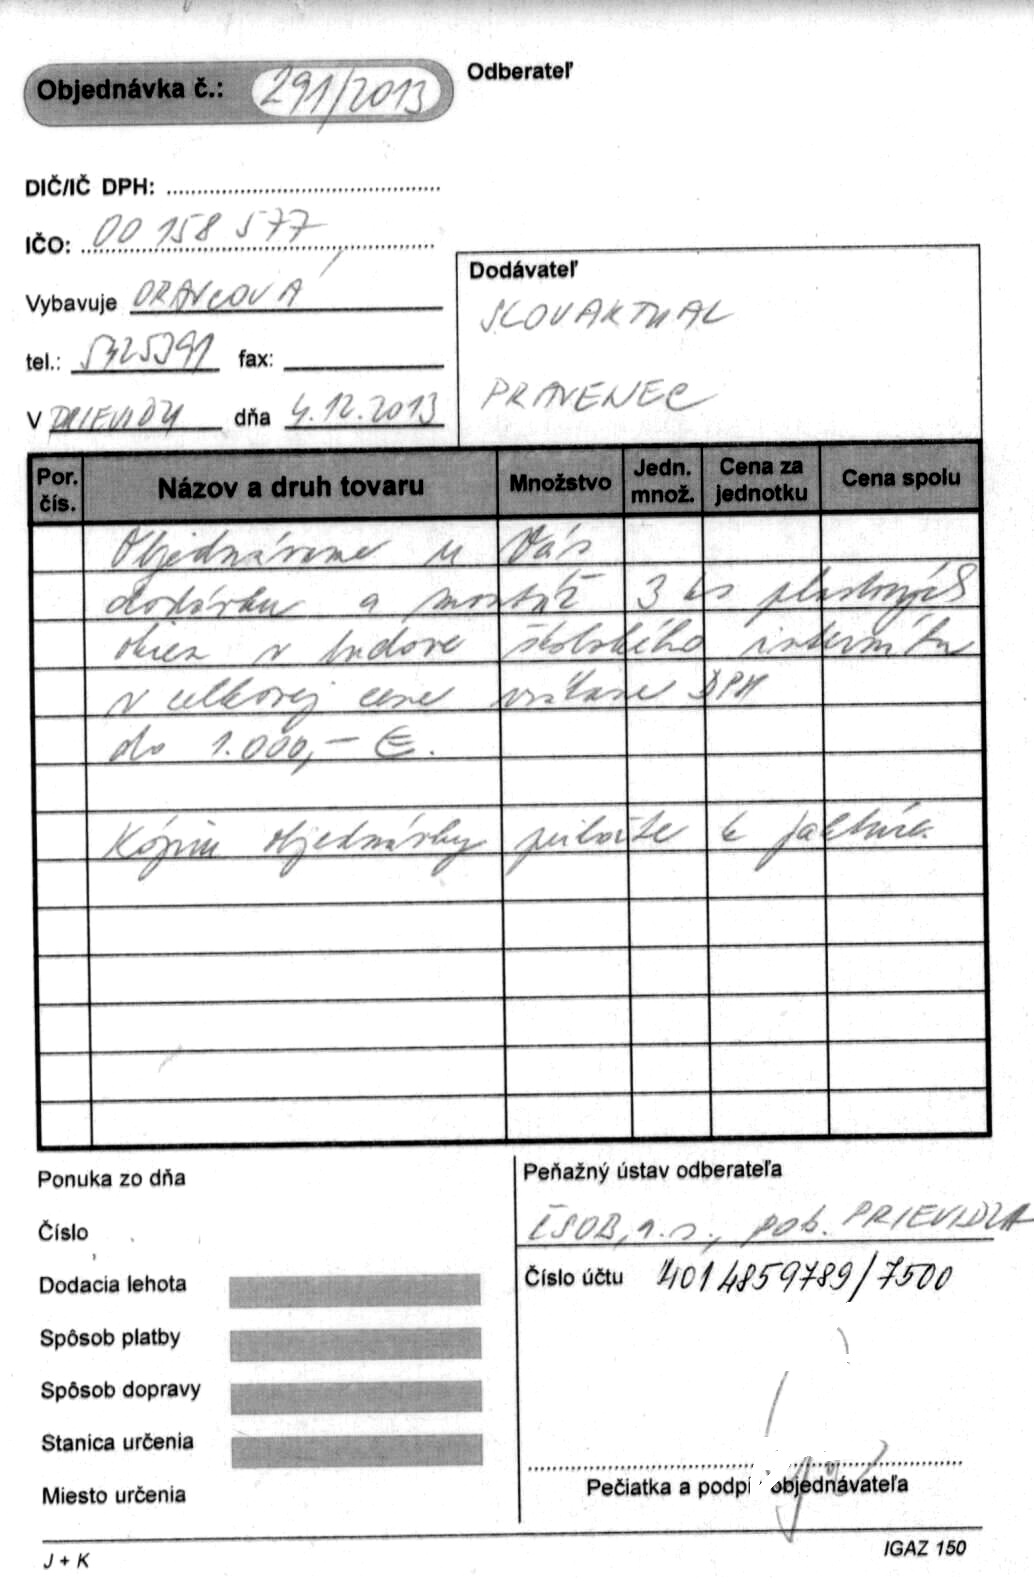 Objednávka č.: 291/2013
Odberateľ
DIČ/IČ DPH:
IČO: 00 158 577
Vybavuje ORAVCOVÁ
tel.: 5425391 fax:
V PRIEVIDZI dňa 4.12.2013
Dodávateľ
SLOVAKTUAL
PRAVENEC
Por. čís. Názov a druh tovaru Množstvo Jedn. množ. Cena za jednotku Cena spolu
Objednávame u Vás
dodávku a montáž 3 ks plastových
okien v budove školského internátu
v celkovej cene vrátane DPH
do 1.000,- €.
Kópiu objednávky priložte k faktúre.
Ponuka zo dňa
Číslo
Dodacia lehota
Spôsob platby
Spôsob dopravy
Stanica určenia
Miesto určenia
Peňažný ústav odberateľa
ČSOB, a.s., pob. PRIEVIDZA
Číslo účtu 4014859789/7500
Pečiatka a podpi objednávateľa
J + K
IGAZ 150